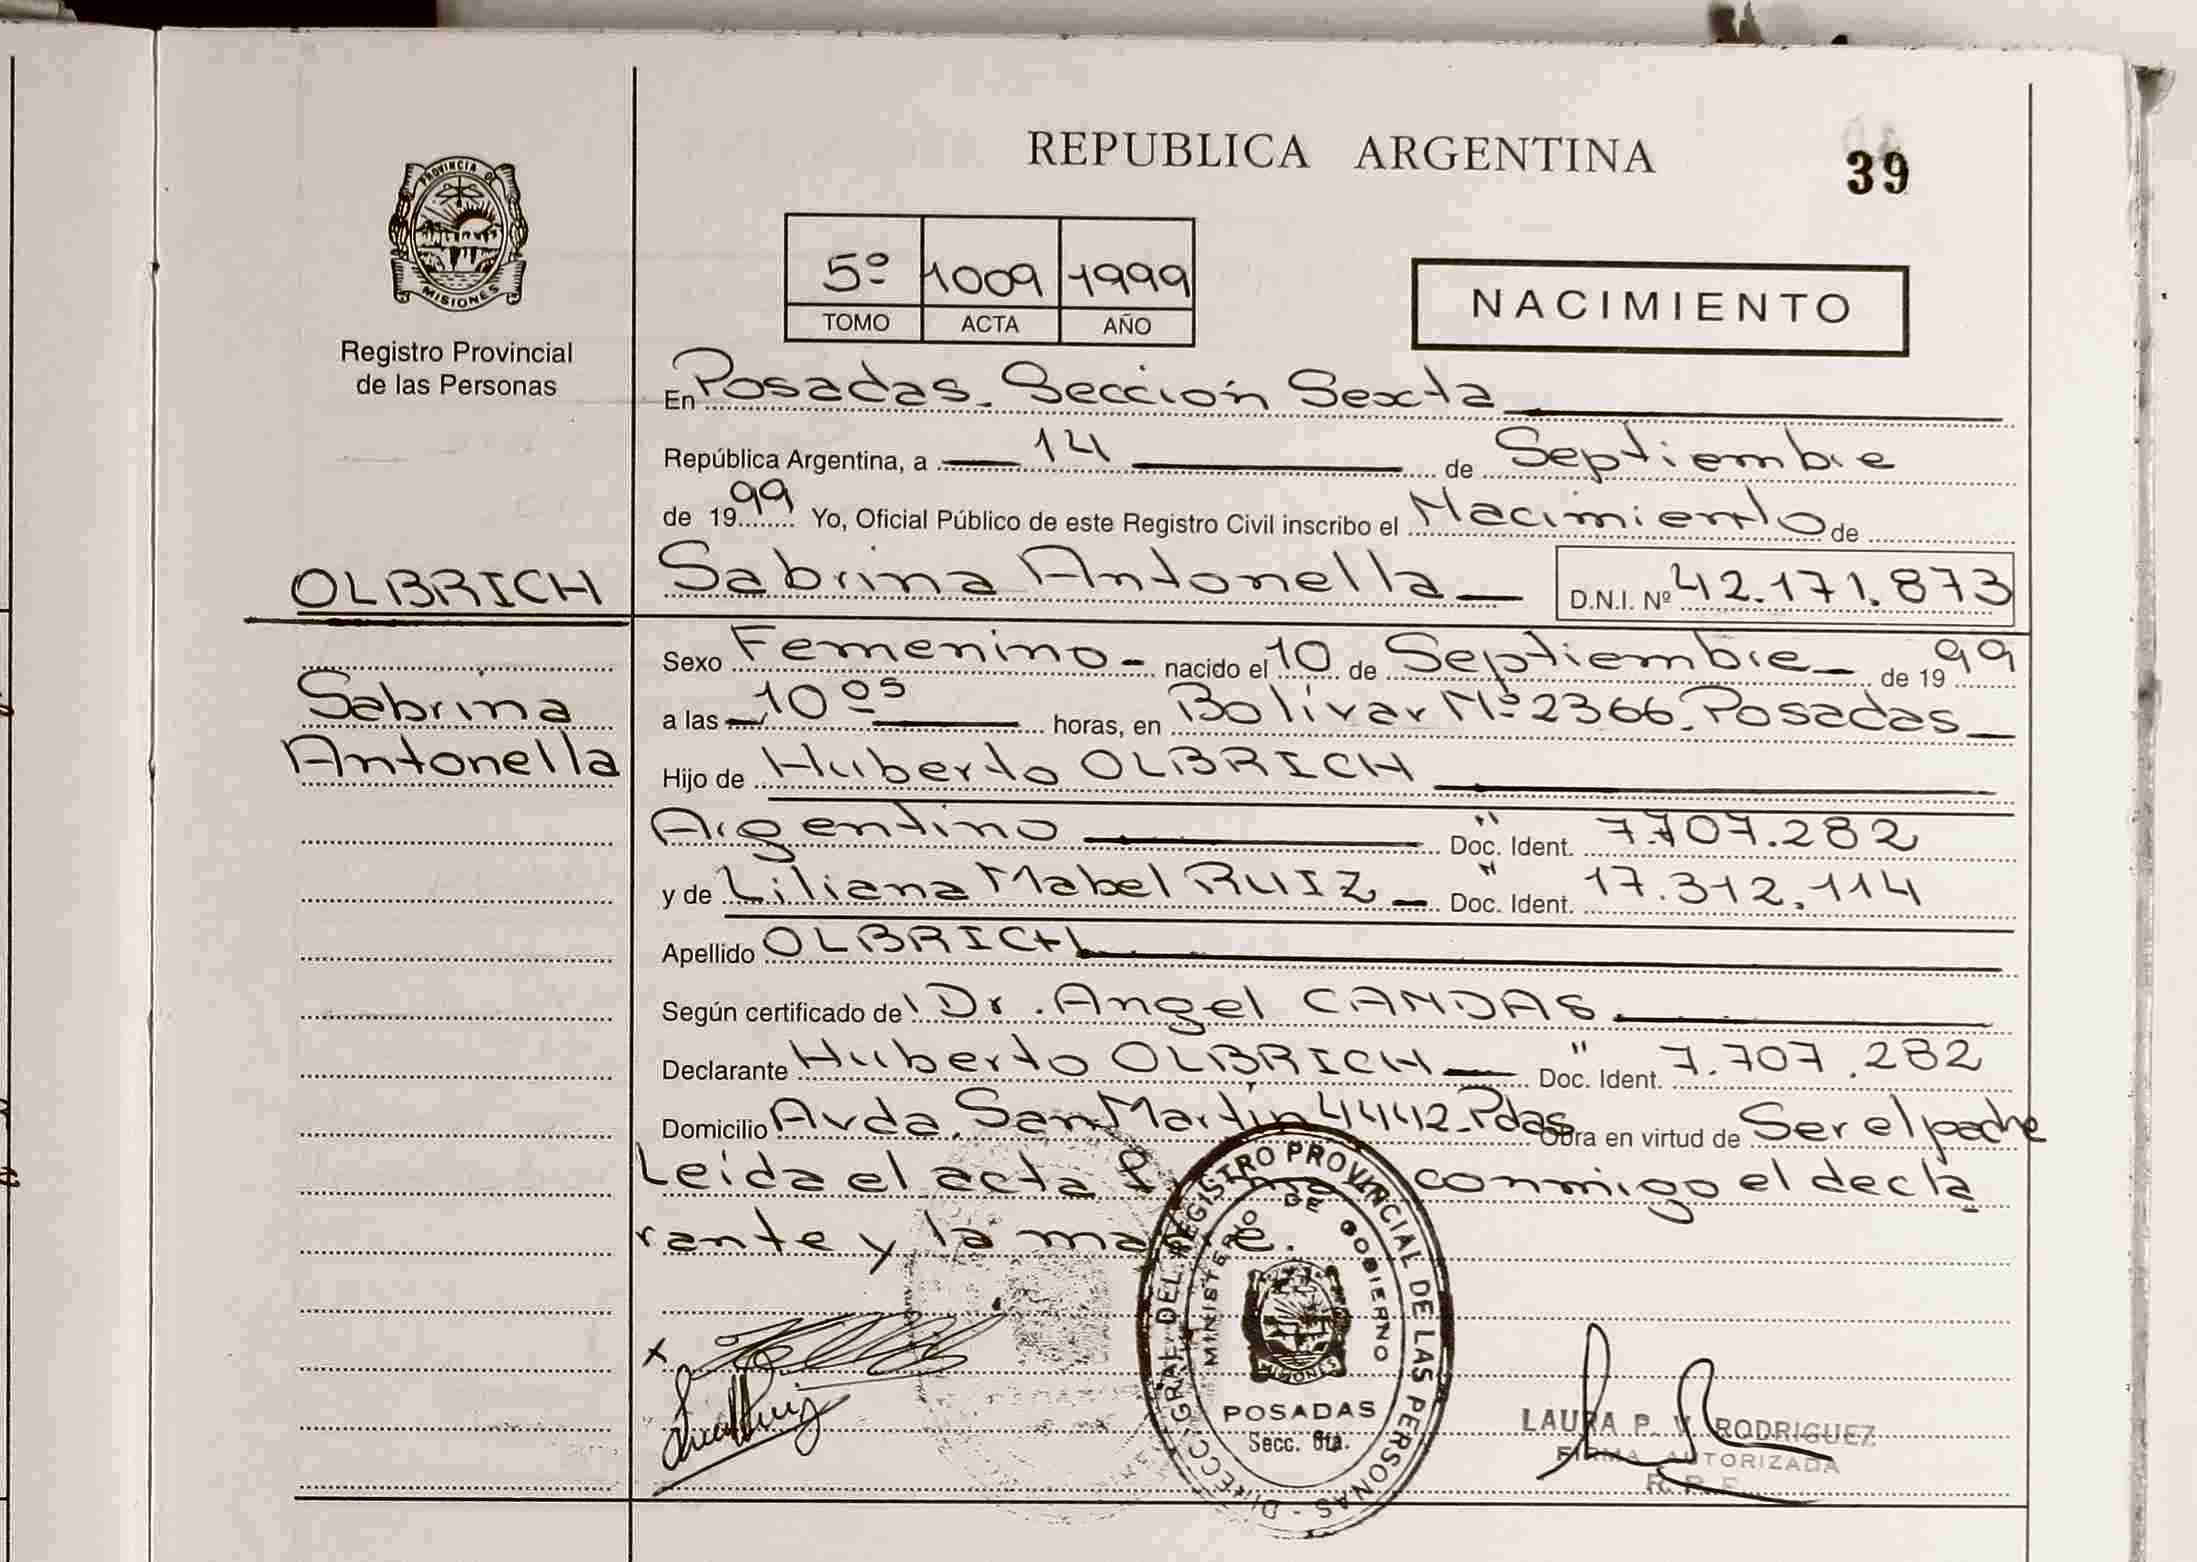 PROVINCIA DE
MISIONES
Registro Provincial
de las Personas
REPUBLICA ARGENTINA
39
5º 1009 1999
TOMO ACTA AÑO
NACIMIENTO
En Posadas. Sección Sexta
República Argentina, a 14 de Septiembre
de 1999 Yo, Oficial Público de este Registro Civil inscribo el Nacimiento de
OLBRICH
Sabrina Antonella D.N.I. Nº 42.171.873
Sexo Femenino nacido el 10 de Septiembre de 1999
Sabrina
Antonella
a las 10 05 horas, en Bolívar Nº 2366. Posadas
Hijo de Huberto OLBRICH
Argentino Doc. Ident. 7.707.282
y de Liliana Mabel RUIZ Doc. Ident. 17.312.114
Apellido OLBRICH
Según certificado de Dr. Angel CANDAS
Declarante Huberto OLBRICH Doc. Ident. 7.707.282
Domicilio Avda. San Martín 4442 - Pdas Obra en virtud de Ser el padre
Leída el acta conmigo el decla
rante y la madre.
DIRECC. GRAL. DEL REGISTRO PROVINCIAL DE LAS PERSONAS
MINISTERIO DE GOBIERNO
MISIONES
POSADAS
Secc. 6ta.
LAURA P. V. RODRIGUEZ
FIRMA AUTORIZADA